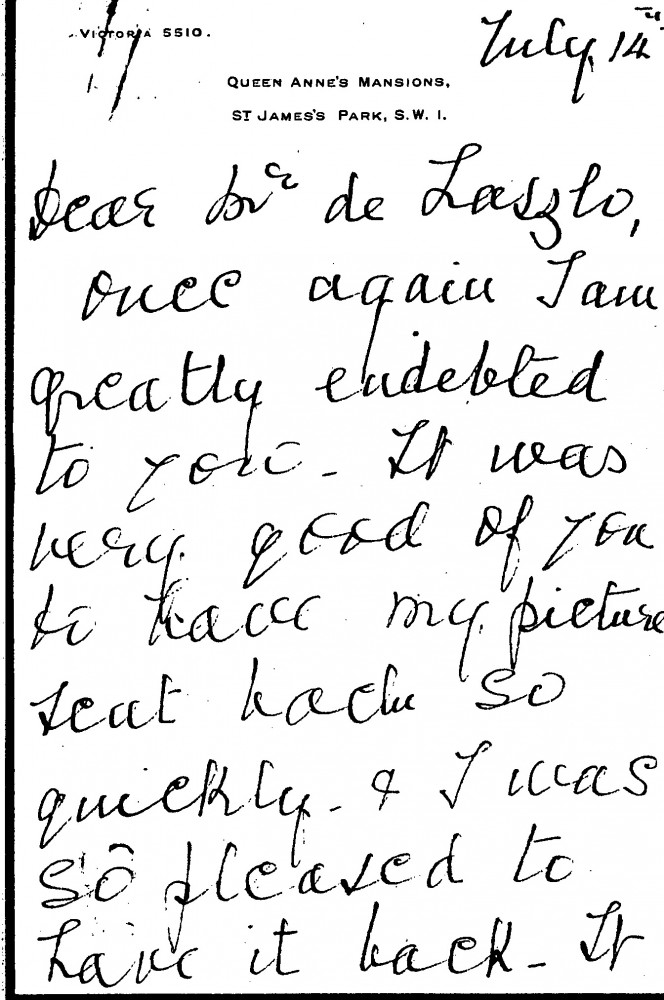 VICTORIA 5510.
July 14th
QUEEN ANNE'S MANSIONS,
ST JAMES'S PARK, S.W. 1.
Dear Mr de Laszlo,
once again I am
greatly endebted
to you - It was
very good of you
to have my picture
sent back so
quickly - & I was
so pleased to
have it back - It